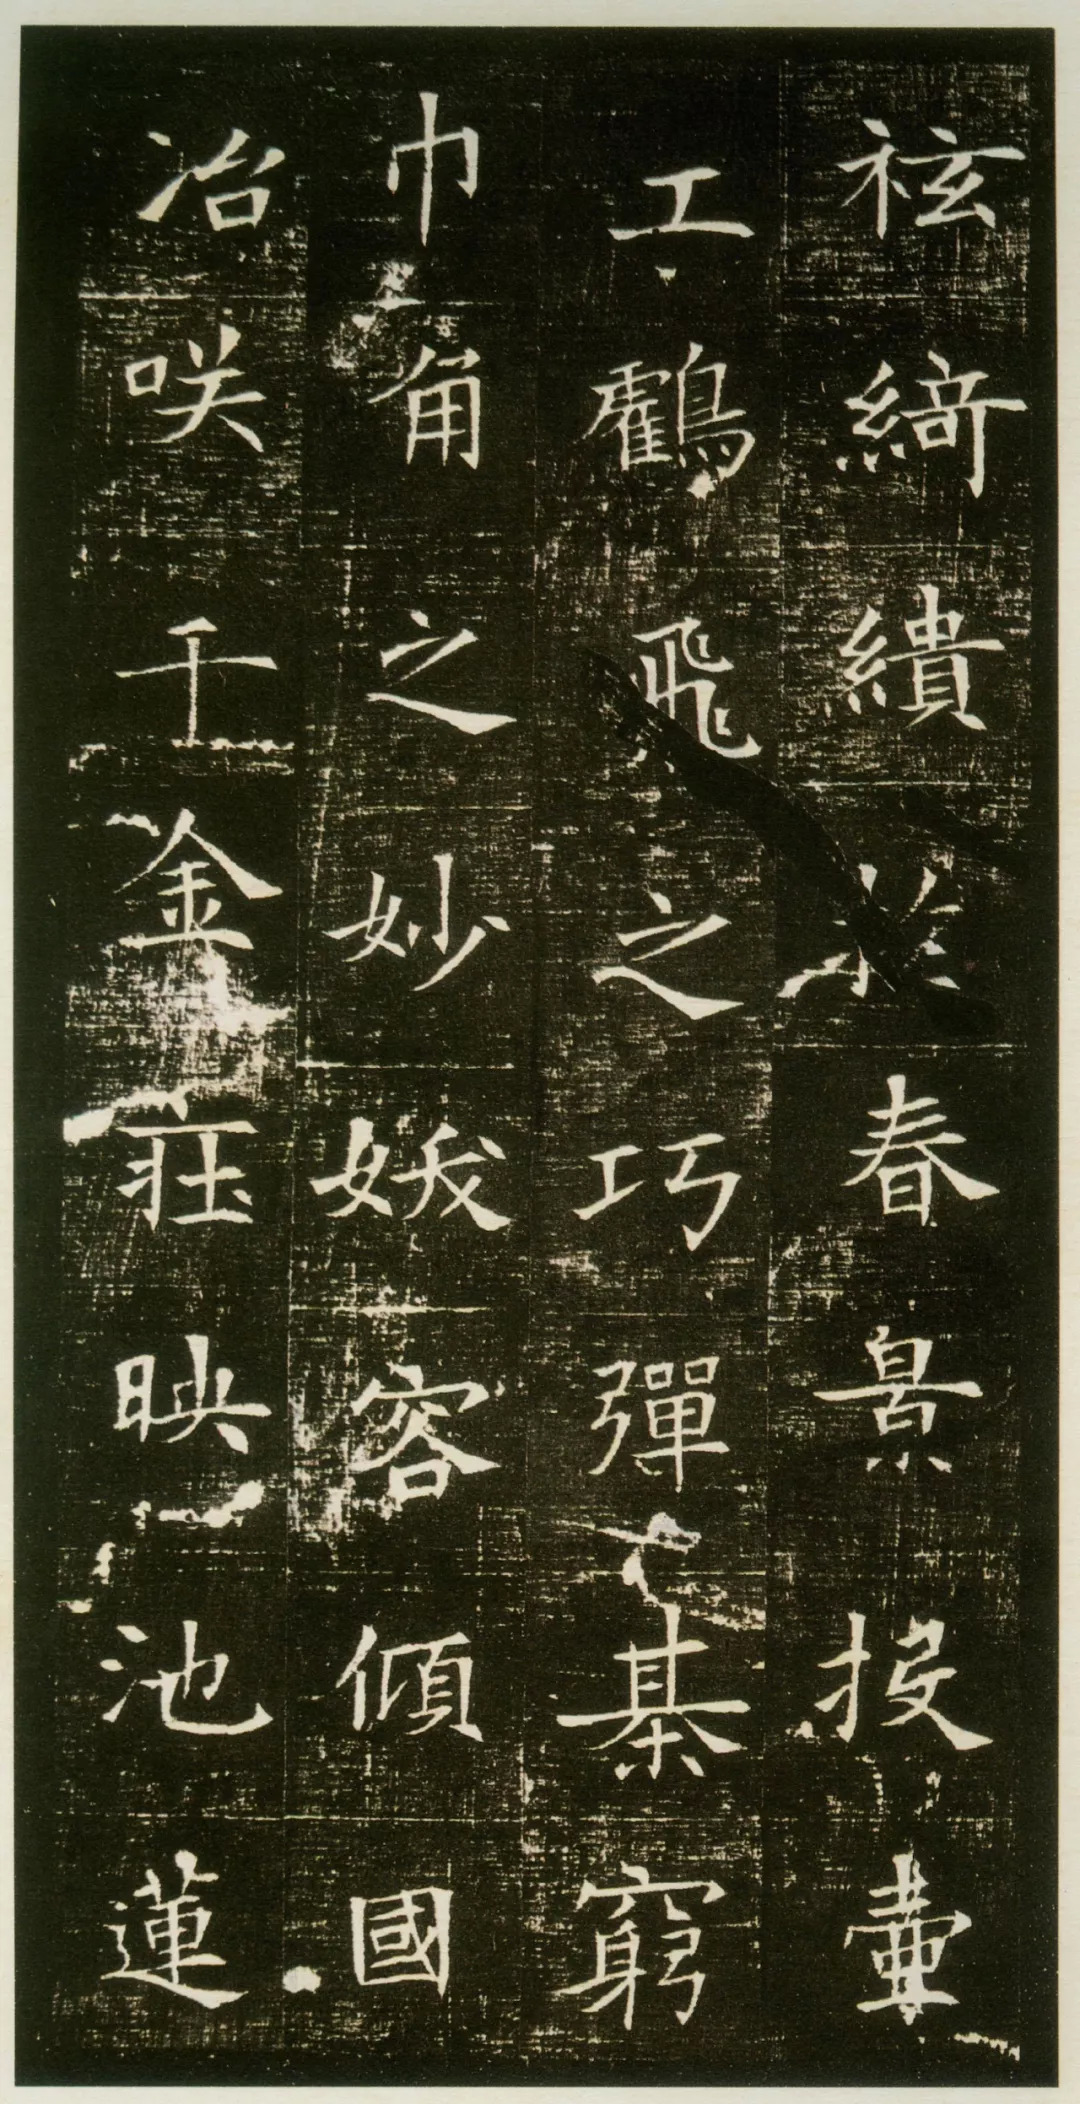 袨綺繢於春景投壺
工鸖飛之巧彈棊窮
巾角之妙妖容傾國
冶咲千金㽵映池蓮